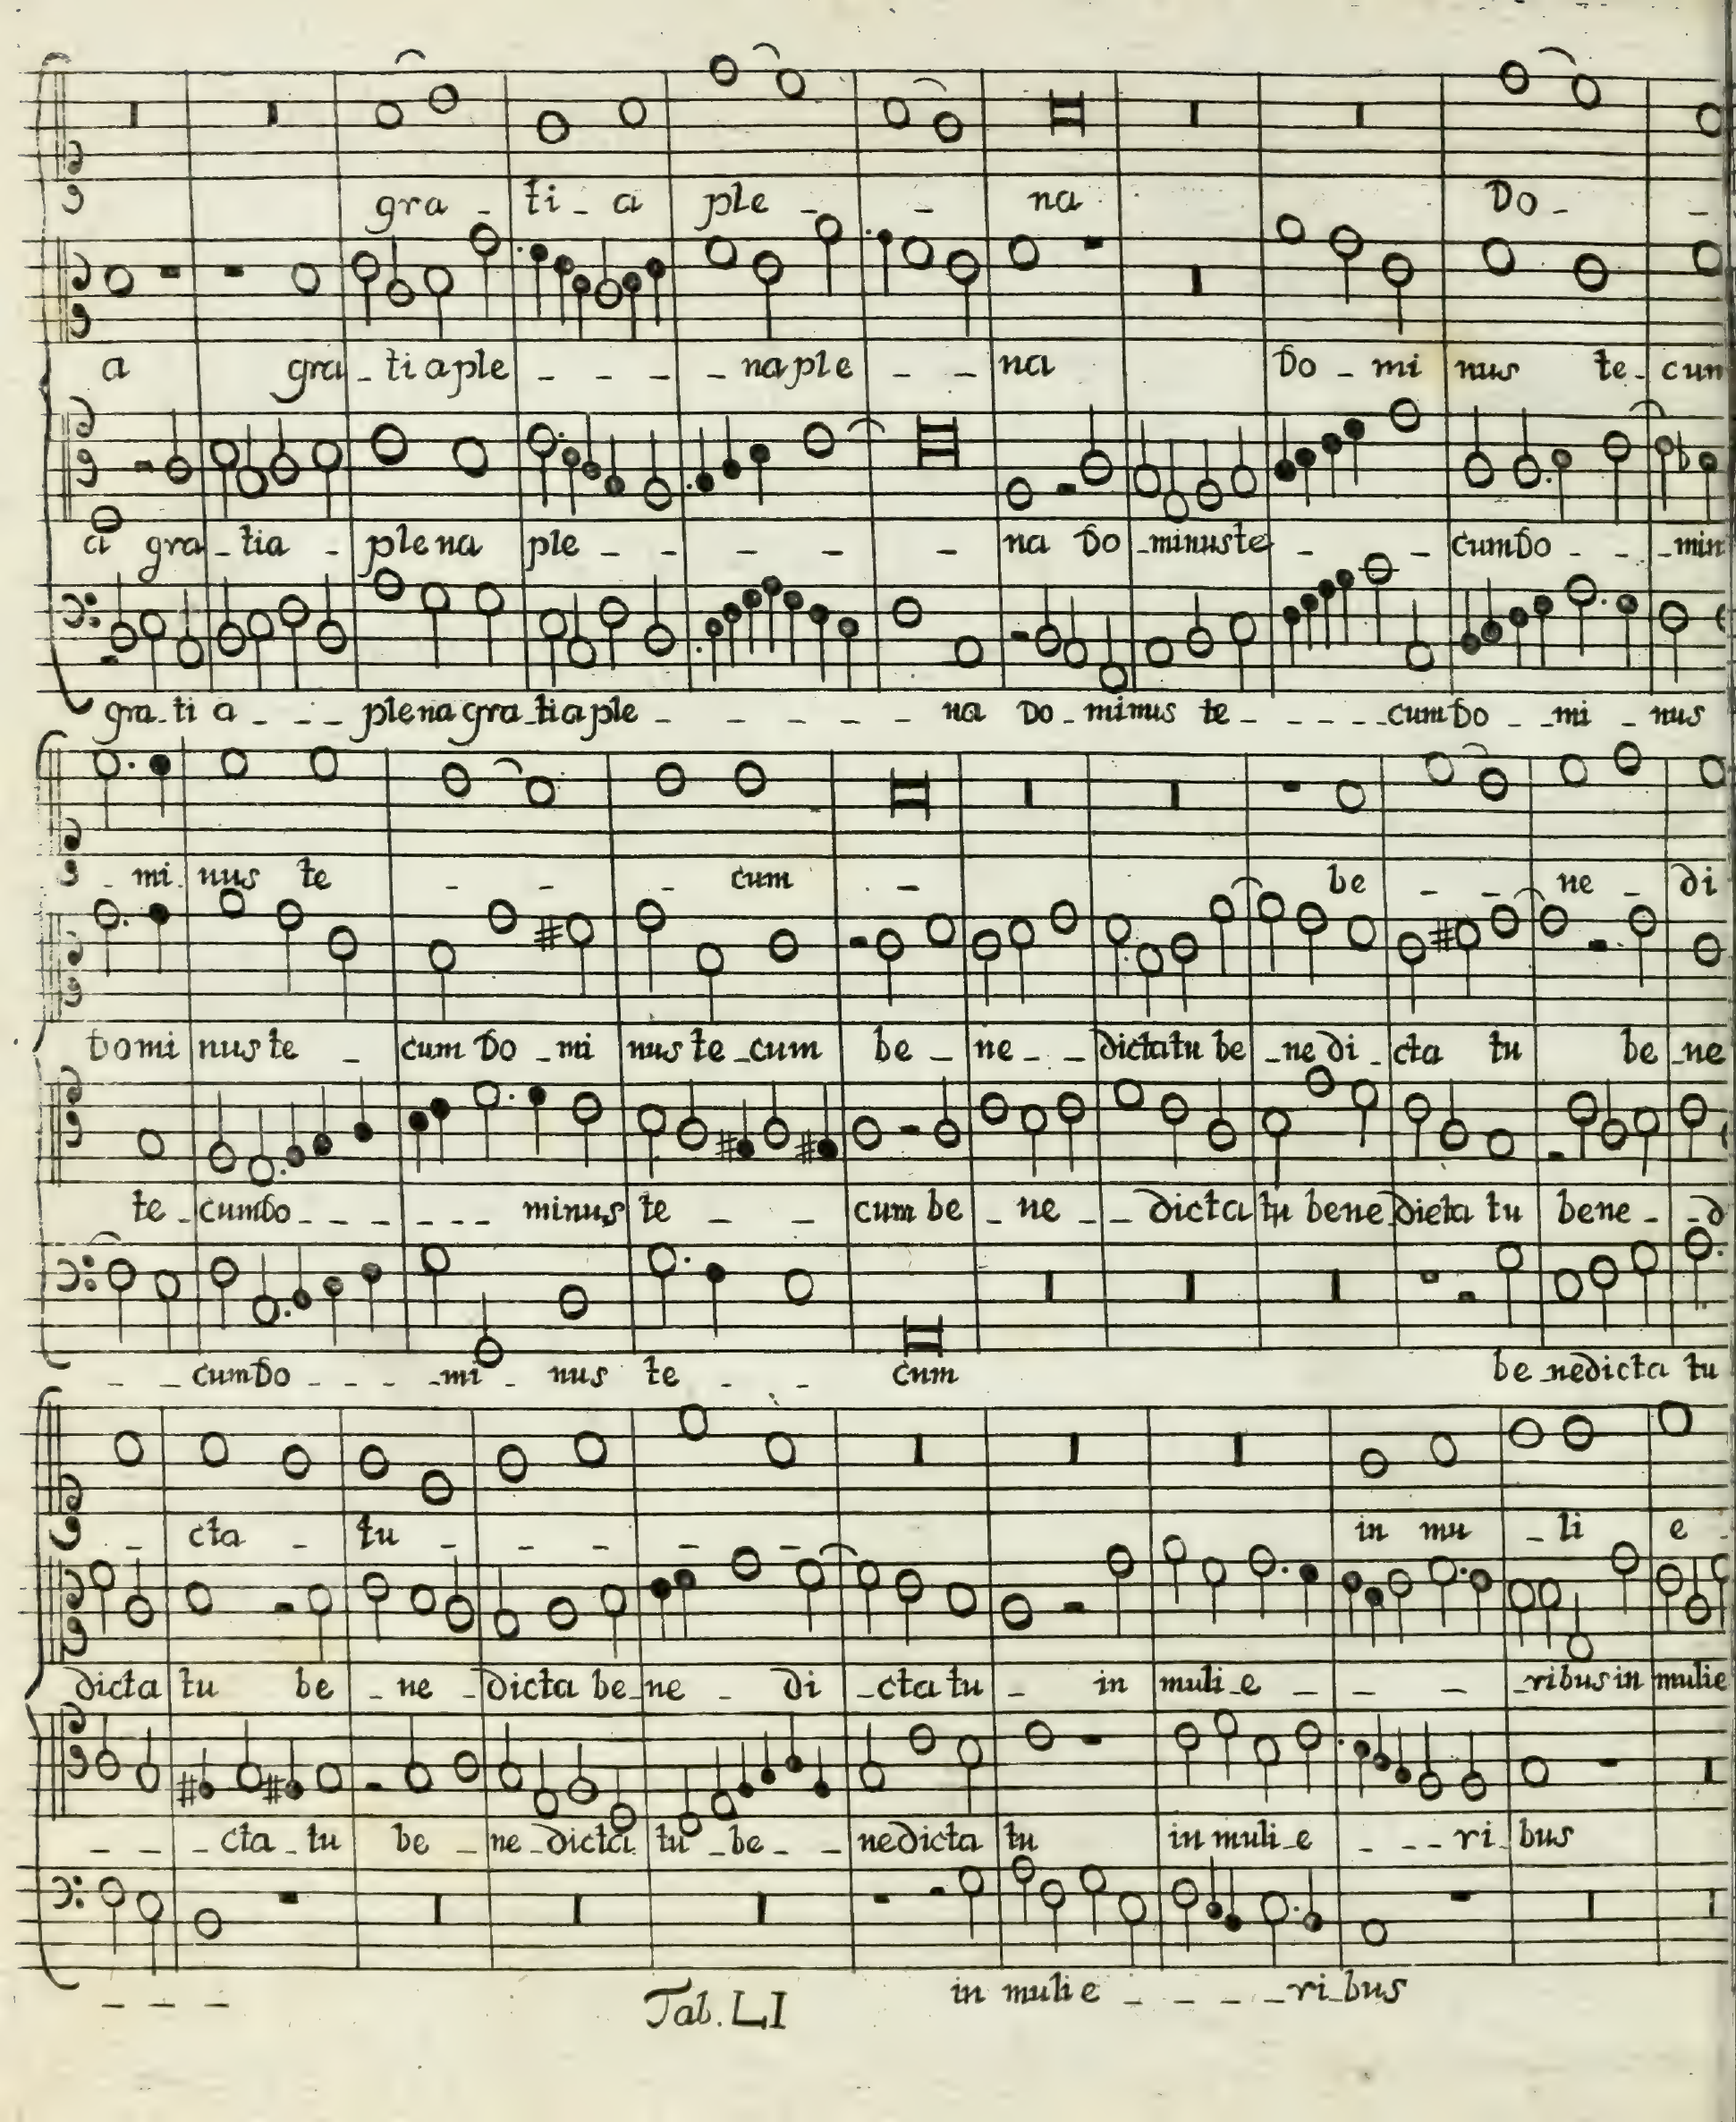 gra - ti - a ple - - na Do - -
a gra - ti a ple - - - - na ple - - na Do - mi nus te - cum
a gra - tia - plena ple - - - - - na Do - minuste - - cum Do - - - min
gra - ti a - - - plena gra - tia ple - - - - - na Do - minus te - - - - - cum Do - - mi - nus
- mi nus te - - - cum - be - - ne - di
Domi nus te - cum Do - mi nus te - cum be - ne - - dicta tu be - ne di - cta tu be - ne
te - cum Do - - - - - - - minus te - - cum be - ne - - dicta tu bene dicta tu bene - - d
- - cum Do - - - - mi - nus te - - cum be - nedicta tu
- cta - tu - - - - - in mu - li e -
dicta tu be - ne - dicta be - ne - di - cta tu - in muli - e - - - - ribus in mulie
- - - cta - tu be - ne - dicta tu - be - - nedicta tu in muli - e - - - ri - bus
- - - in muli e - - - - - ri - bus
Tab. LI